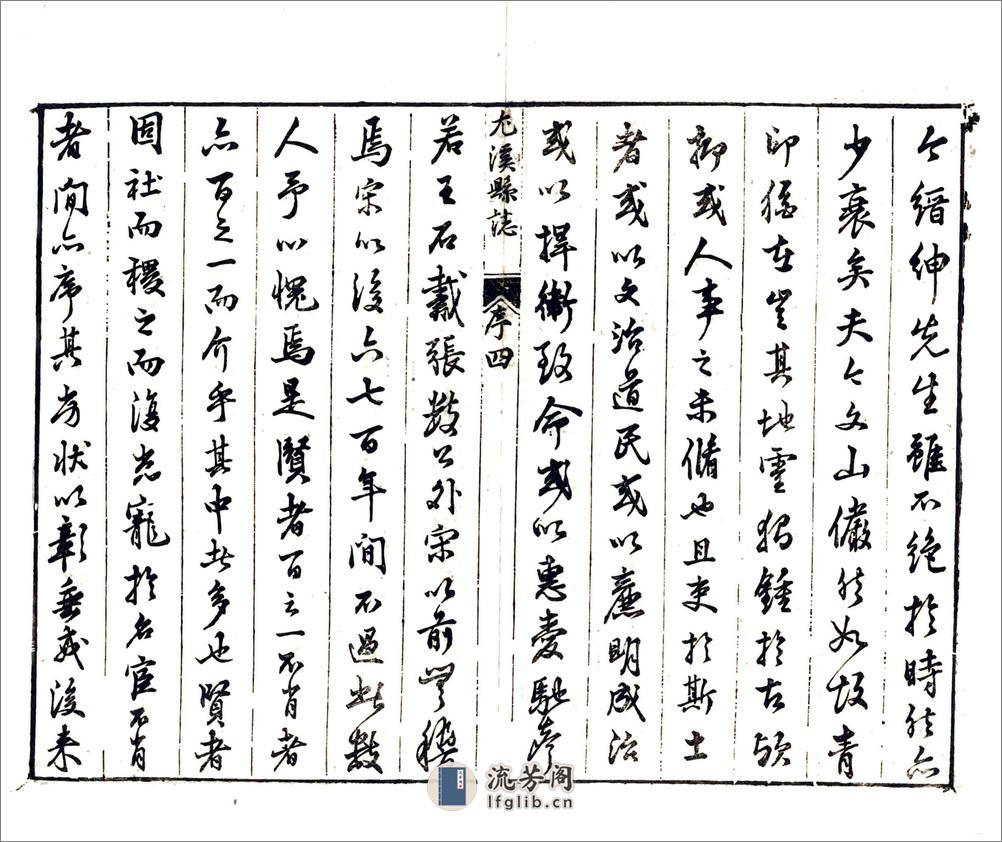 今縉紳先生雖不絕於時然亦
少衰矣夫今文山儼然如故青
印猶在豈其地靈獨鍾於古歟
抑或人事之未脩也且吏於斯土
者或以文治道民或以廉明成治
或以捍衛致命或以惠愛馳聲
尤溪縣誌
序四
若王石戴張數公外宋以前無稽
焉宋以後六七百年間不過此數
人予以愧焉是賢者百之一不肖者
亦百之一而介乎其中者多也賢者
固社而稷之而復志寵於名宦不肖
者間亦序其方狀以彰垂戒後来
流芳阁
lfglib.cn